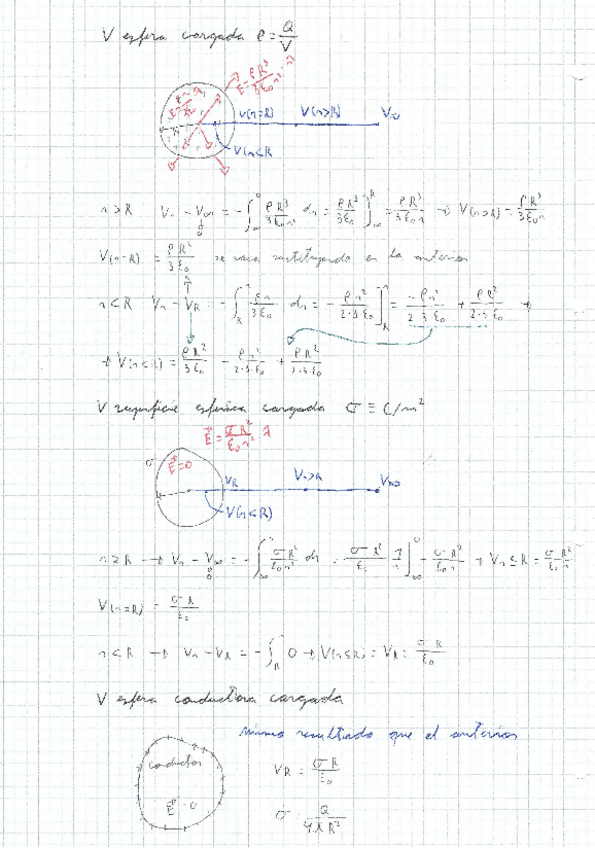 V esfera cargada ρ = Q/V
E = ρR³/3ε₀r² r̂
V(r=R) V(r>R) V∞
V(r<R
r>R Vr - V∞ = -∫ ρR³/3ε₀r² dr = ρR³/3ε₀ ]R∞ = ρR³/3ε₀r → V(r>R) = ρR³/3ε₀r
0
V(r=R) = ρR²/3ε₀ se saca sustituyendo en la anterior
r<R Vr - VR = -∫ ρr/3ε₀ dr = - ρr²/2·3·ε₀ ]rR = -ρr²/2·3·ε₀ + ρR²/2·3·ε₀ →
→ V(r<R) = ρR²/3ε₀ - ρr²/2·3·ε₀ + ρR²/2·3·ε₀
V superficie esférica cargada σ ≡ C/m²
E = σR²/ε₀r² r̂
σ E=0
VR Vr>R V∞
V(r<R)
r≥R → Vr - V∞ = -∫ σR²/ε₀r² dr = σR²/ε₀ 1/r ] = σR²/ε₀r → Vr≤R = σR²/ε₀r
0
V(r=R) = σR/ε₀
r<R → Vr - VR = -∫ 0 → V(r≤R) = VR = σR/ε₀
V esfera conductora cargada
mismo resultado que el anterior
conductor
VR = σR/ε₀
E=0
σ = Q/4πR²